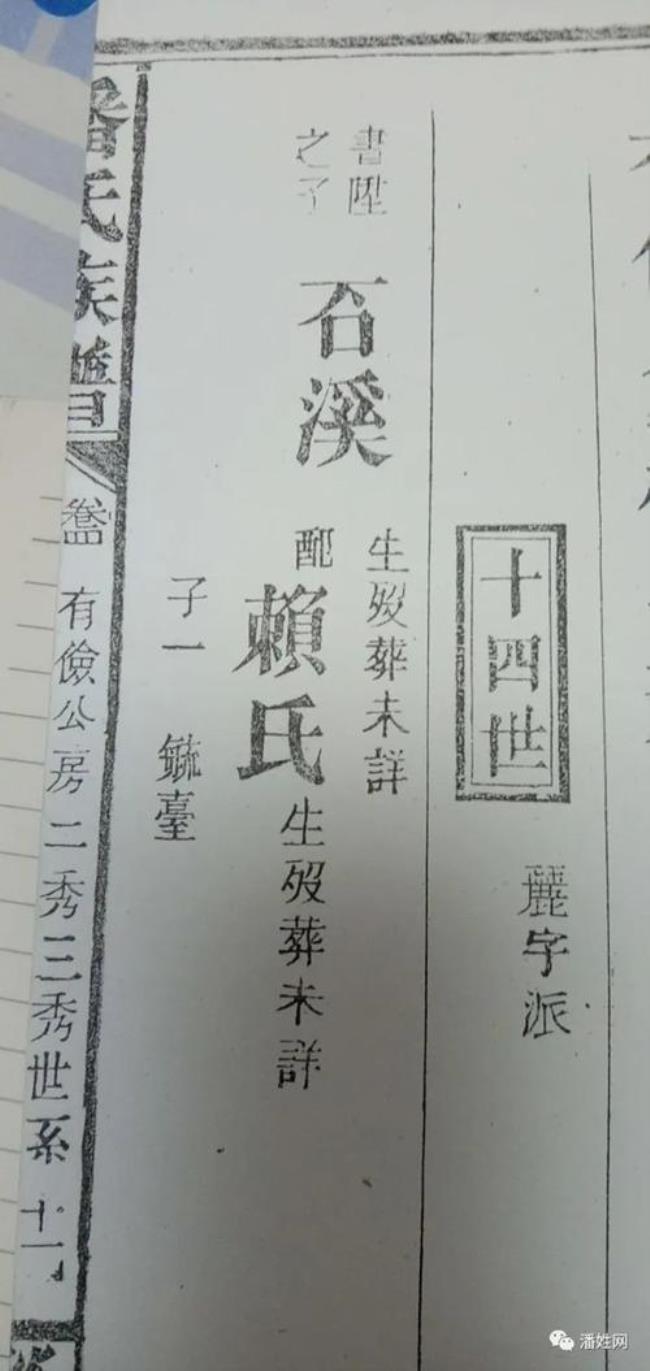 十四世
麗字派
書陞
之子
石溪
生歿葬未詳
配
賴氏
生歿葬未詳
子一 毓臺
潘氏族譜
有儉公房二秀三秀世系 十一
潘姓网